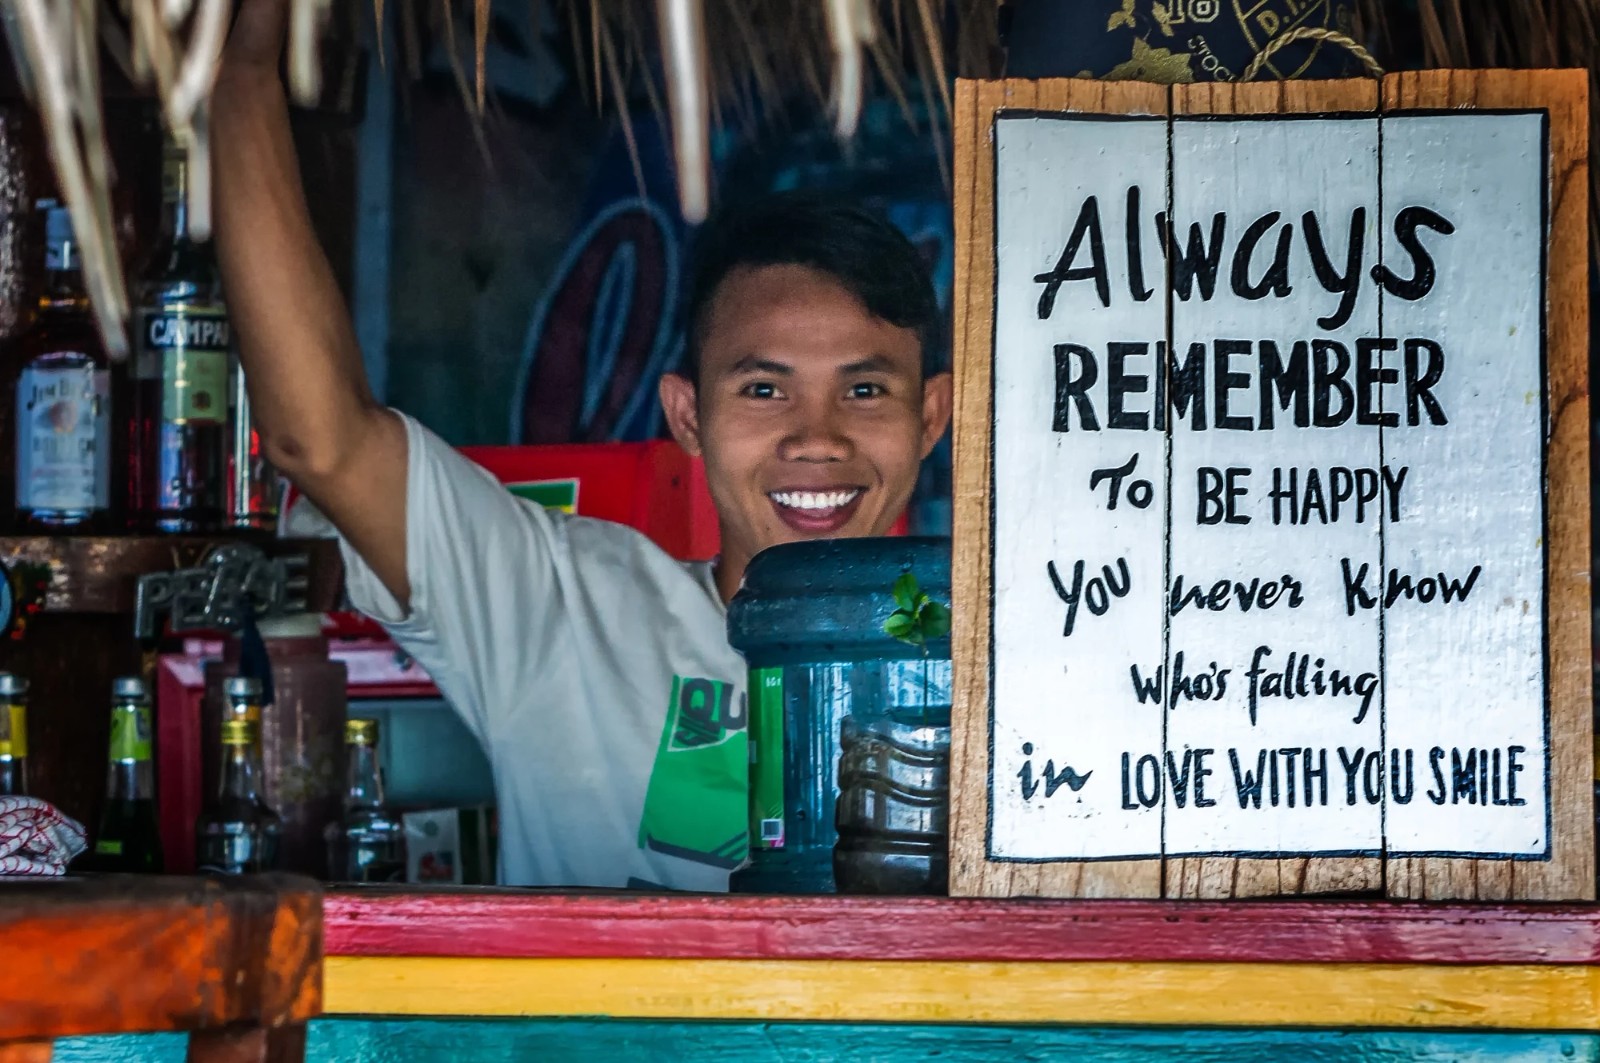 Always
REMEMBER
To BE HAPPY
You never Know
who's falling
in LOVE WITH YOU SMILE
18
D.
STOC
CAMPA
JIM BEAM
PEACE